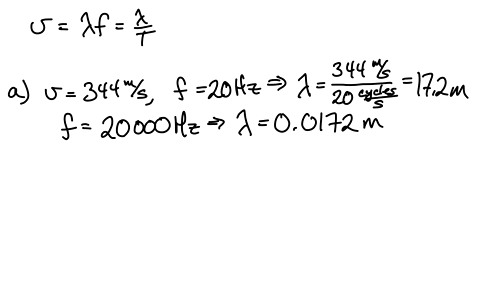 v = λf = λ/T
a) v = 344 m/s, f = 20 Hz ⇒ λ = 344 m/s / 20 cycles/s = 17.2 m
f = 20000 Hz ⇒ λ = 0.0172 m